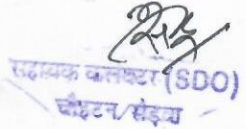 सहायक कलक्टर (SDO)
चौहटन/सेड़वा